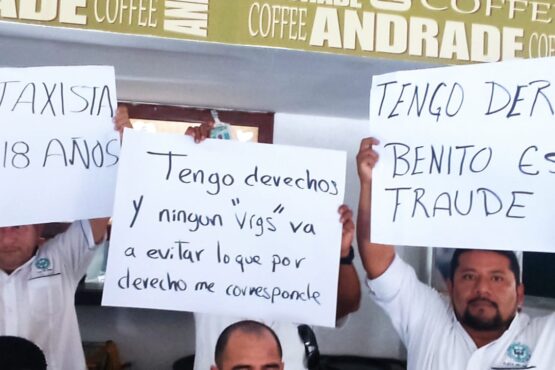 COFFEE
ANDRADE
COFFEE
COFFEE
ANDRADE
COFFEE
TAXISTA
18 AÑOS
Tengo derechos
y ningun "vrgs" va
a evitar lo que por
derecho me corresponde
TENGO DER
BENITO ES
FRAUDE